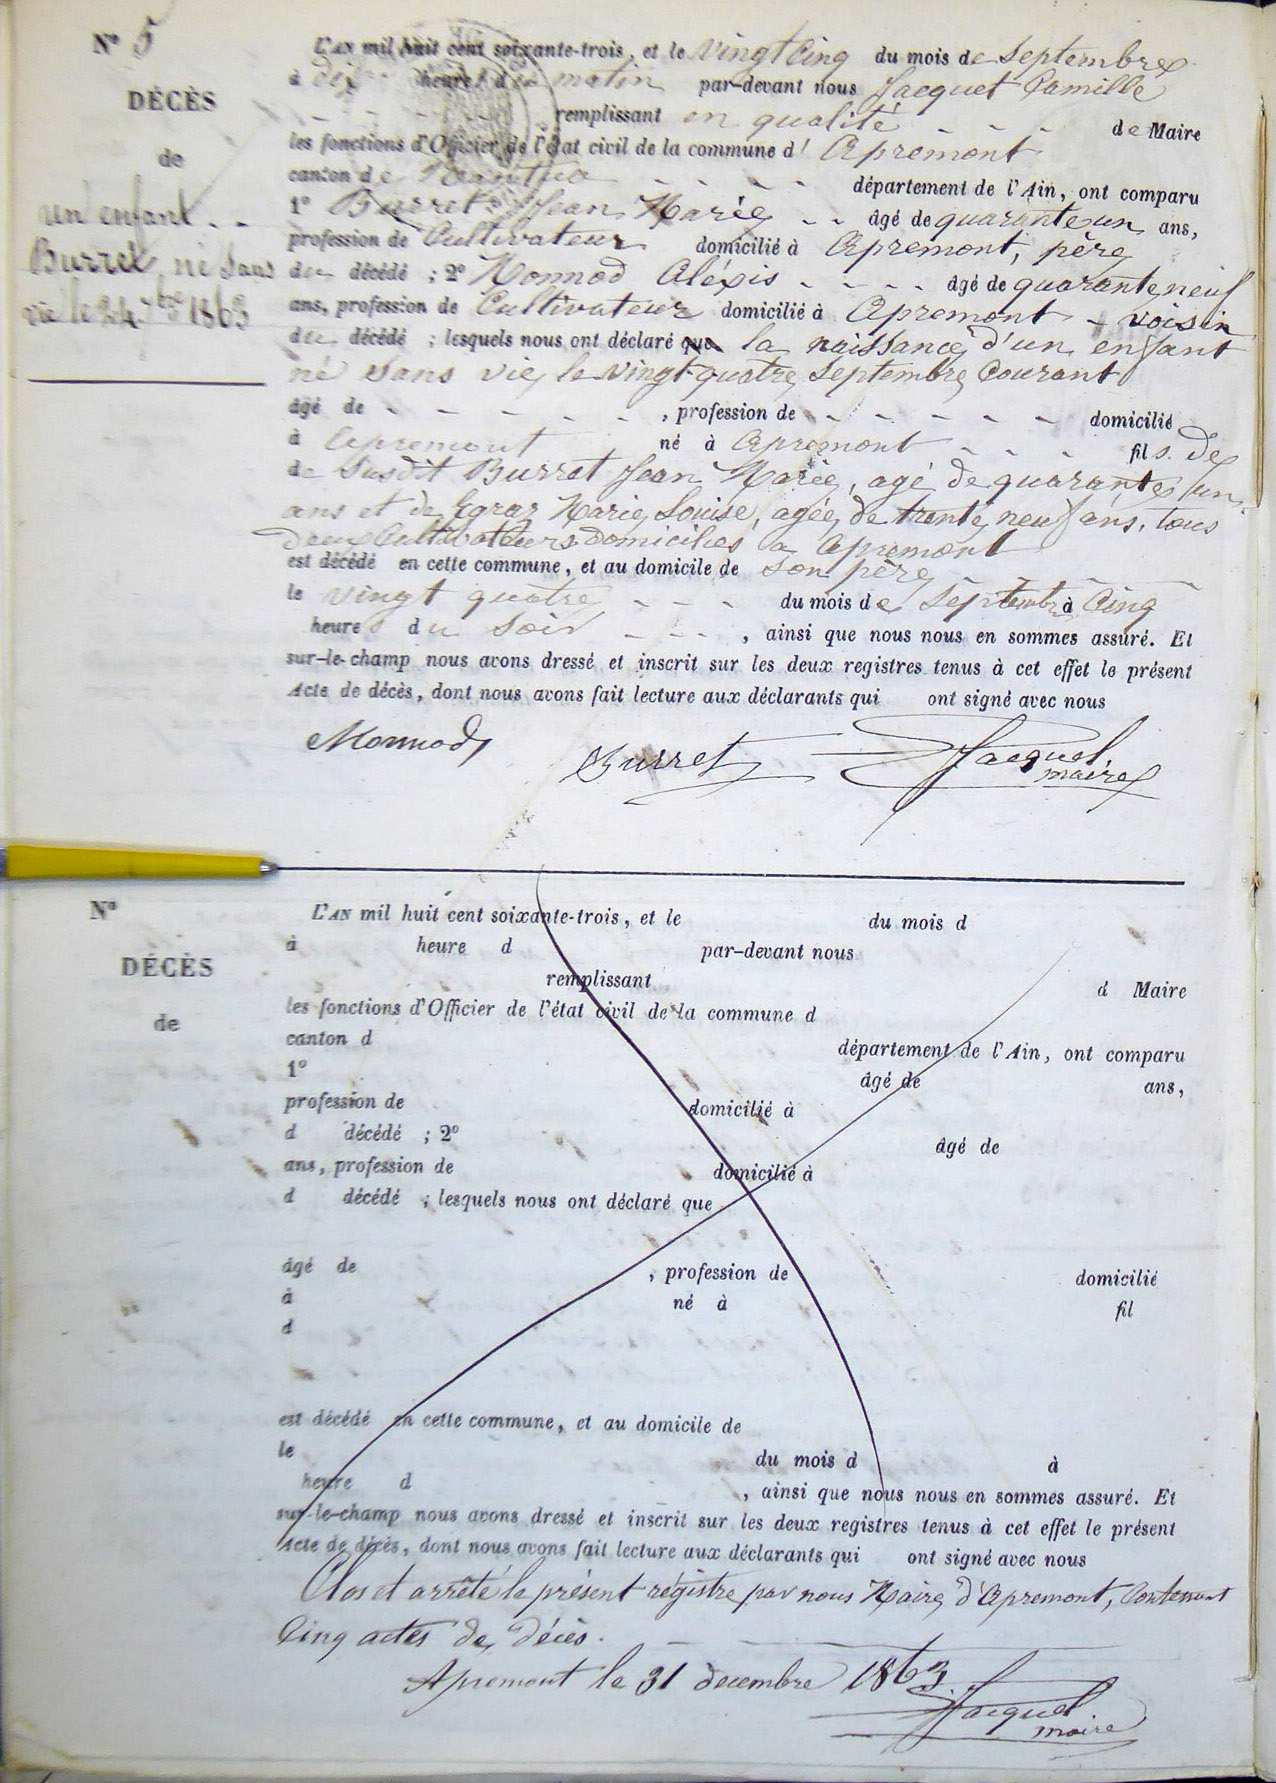 N° 5
DÉCÈS
de
un enfant
Burret, né sans
vie le 24 7bre 1863
L'AN mil huit cent soixante-trois, et le vingt Cinq du mois de Septembre
à dix heures du matin par-devant nous Jacquet Camille
remplissant en qualité de Maire
les fonctions d'Officier de l'état civil de la commune d' Apremont
canton de Nantua département de l'Ain, ont comparu
1° Burret Jean Marie âgé de quarante un ans,
profession de Cultivateur domicilié à Apremont, père
du décédé ; 2° Monnod Aléxis âgé de quarante neuf
ans, profession de Cultivateur domicilié à Apremont voisin
du décédé ; lesquels nous ont déclaré que la naissance d'un enfant
né sans vie, le vingt quatre Septembre Courant
âgé de - - - - - - , profession de - - - - - - domicilié
à Apremont né à Apremont - - - fils. de
de Susdit Burret Jean Marie, agé de quarante un
ans et de Egraz Marie Louise, agée de trente neuf ans, tous
deux Cultivateurs domiciliés à Apremont
est décédé en cette commune, et au domicile de son père
le vingt quatre - - - du mois de Septembre à Cinq
heure du soir - - - , ainsi que nous nous en sommes assuré. Et
sur-le-champ nous avons dressé et inscrit sur les deux registres tenus à cet effet le présent
Acte de décès, dont nous avons fait lecture aux déclarants qui ont signé avec nous
Monnod Burret Jacquet
maire
N°
DÉCÈS
de
L'AN mil huit cent soixante-trois, et le du mois d
à heure d par-devant nous
remplissant d Maire
les fonctions d'Officier de l'état civil de la commune d
canton d département de l'Ain, ont comparu
1° âgé de ans,
profession de domicilié à
d décédé ; 2° âgé de
ans, profession de domicilié à
d décédé ; lesquels nous ont déclaré que
âgé de , profession de domicilié
à né à fil
d
est décédé en cette commune, et au domicile de
le du mois d à
heure d , ainsi que nous nous en sommes assuré. Et
sur-le-champ nous avons dressé et inscrit sur les deux registres tenus à cet effet le présent
Acte de décès, dont nous avons fait lecture aux déclarants qui ont signé avec nous
Clos et arrêté le présent régistre par nous Maire d'Apremont, Contenant
Cinq actes de décès.
Apremont le 31 decembre 1863
Jacquet
maire